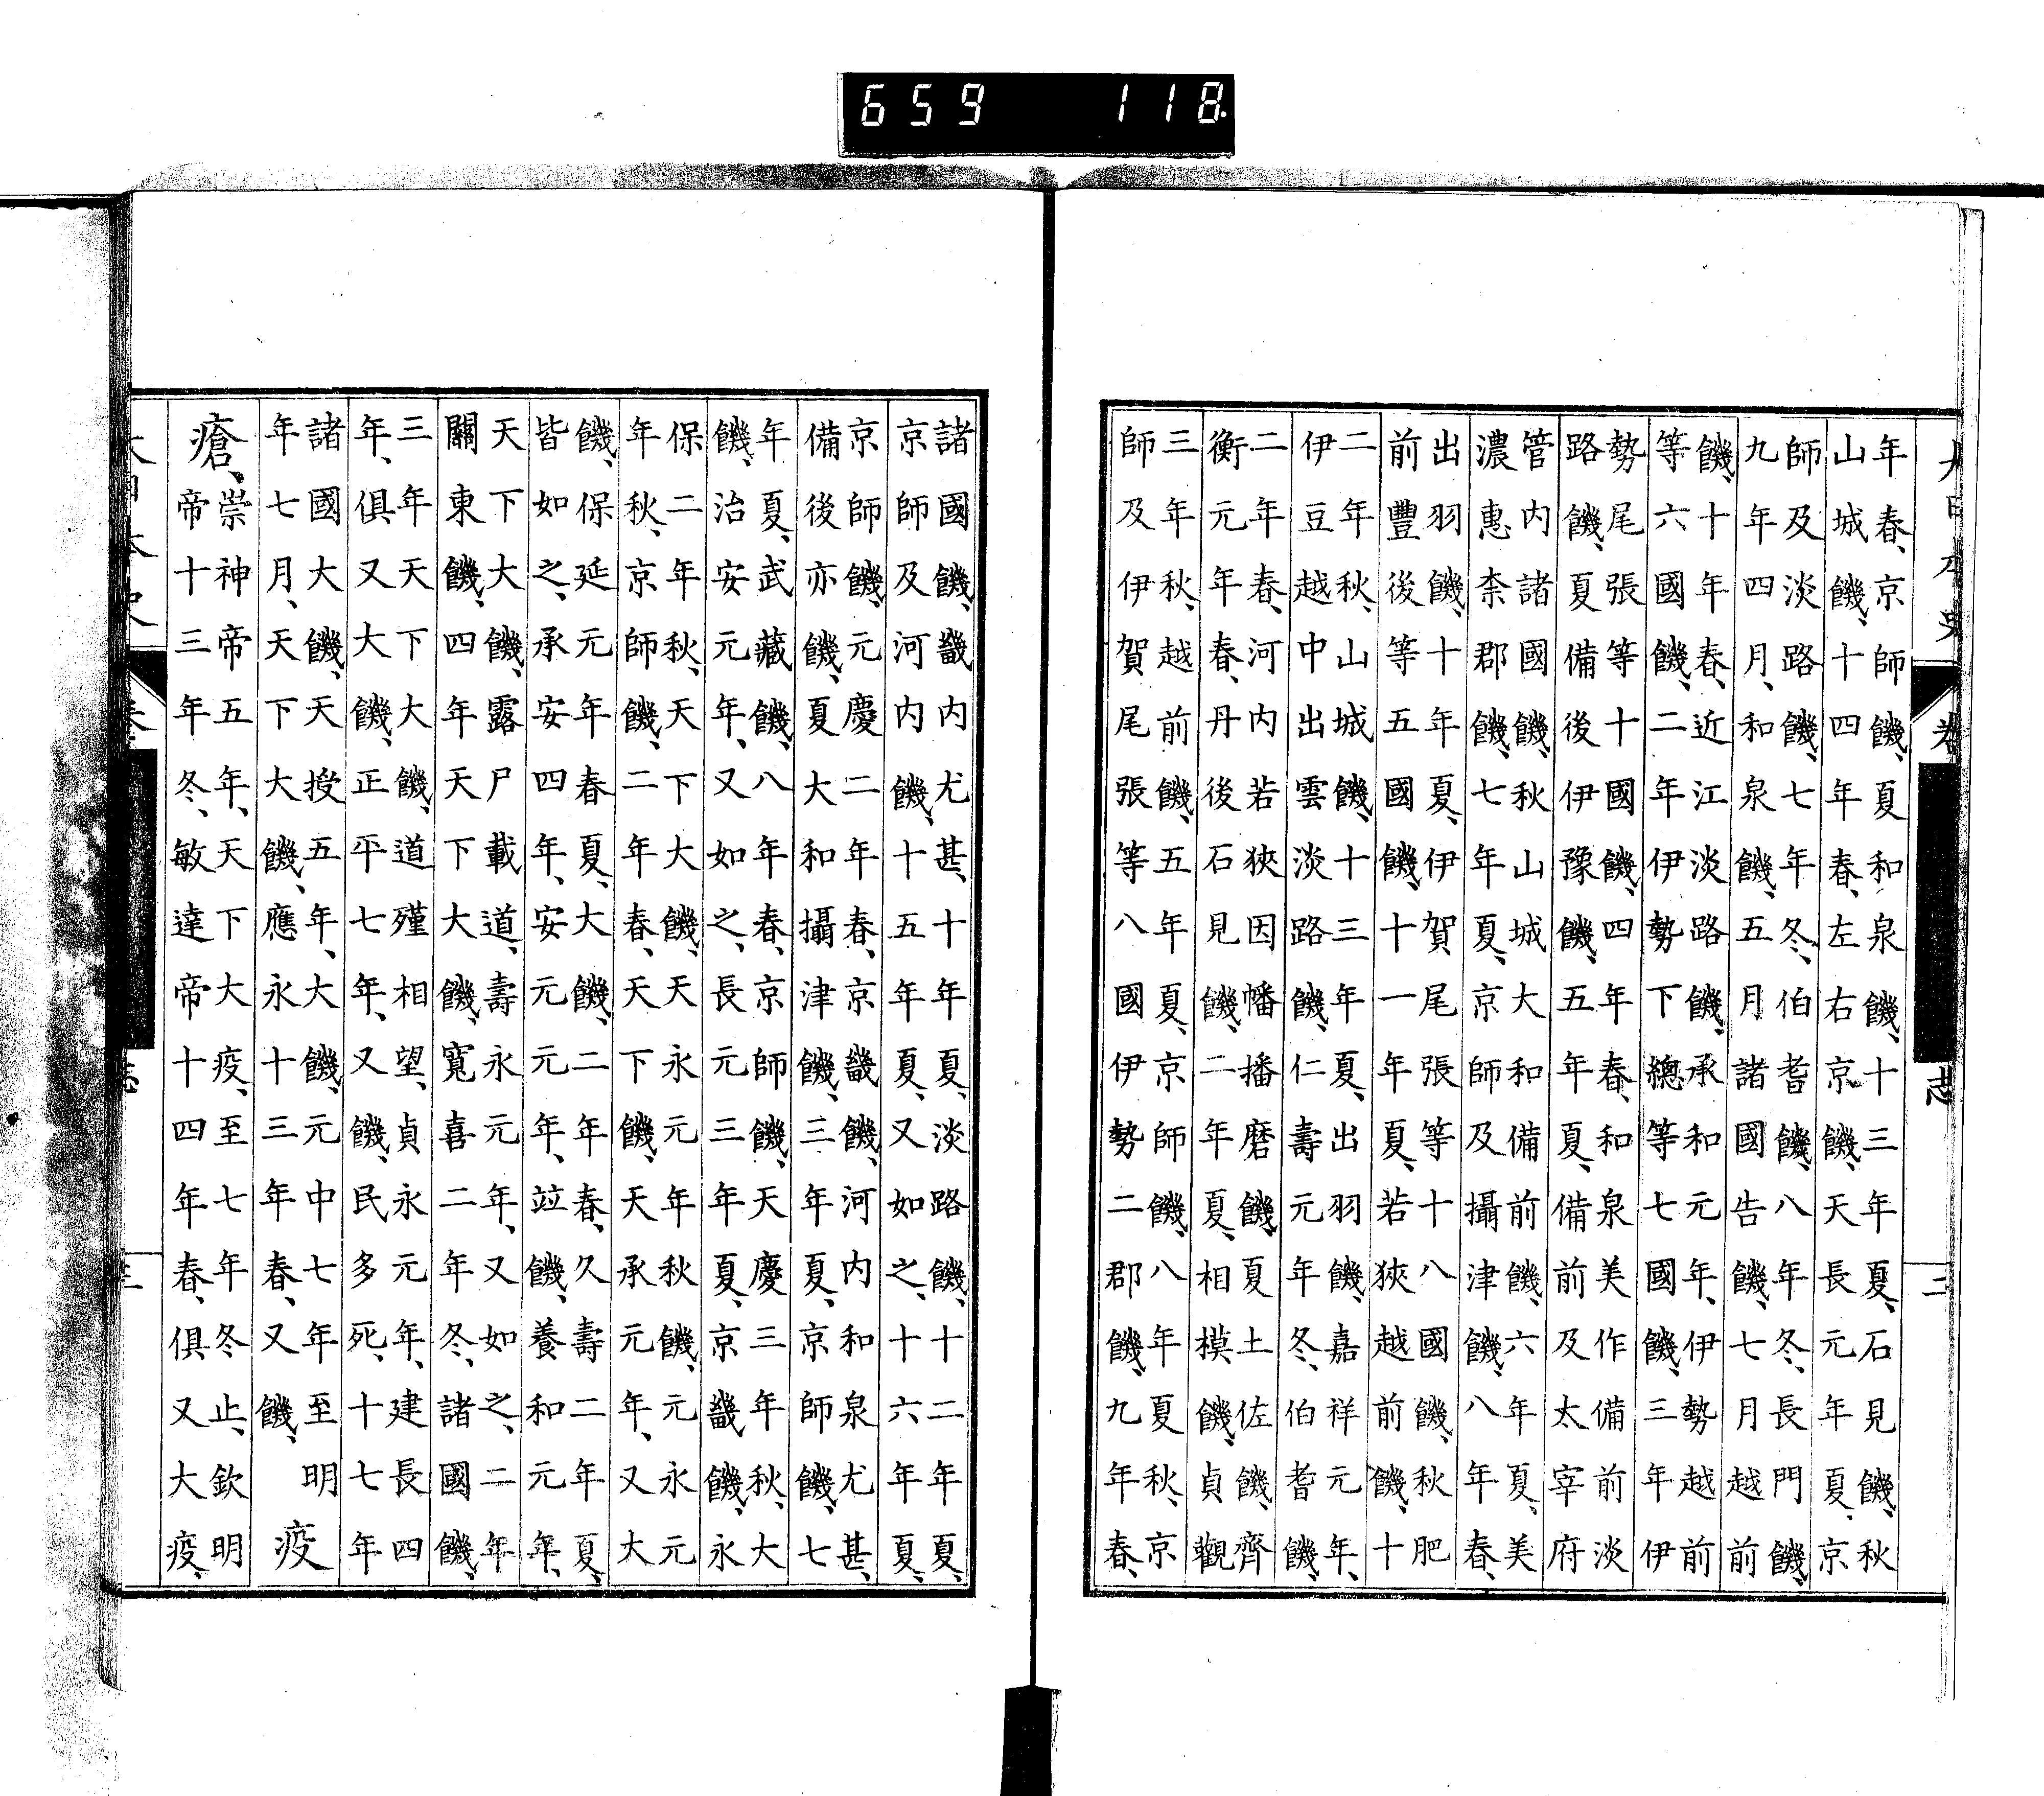 659 118
大日本史 卷 志 三
年春、京師饑、夏和泉饑、十三年夏、石見饑、秋
山城饑、十四年春、左右京饑、天長元年夏、京
師及淡路饑、七年冬、伯耆饑、八年冬、長門饑、
九年四月、和泉饑、五月諸國告饑、七月越前
饑、十年春、近江淡路饑、承和元年、伊勢越前
等六國饑、二年伊勢下總等七國饑、三年伊
勢尾張等十國饑、四年春、和泉美作備前淡
路饑、夏備後伊豫饑、五年夏、備前及太宰府
管内諸國饑、秋山城大和備前饑、六年夏、美
濃惠柰郡饑、七年夏、京師及攝津饑、八年春、
出羽饑、十年夏、伊賀尾張等十八國饑、秋肥
前豐後等五國饑、十一年夏、若狹越前饑、十
二年秋、山城饑、十三年夏、出羽饑、嘉祥元年、
伊豆越中出雲淡路饑、仁壽元年冬、伯耆饑、
二年春、河内若狹因幡播磨饑、夏土佐饑、齊
衡元年春、丹後石見饑、二年夏、相模饑、貞觀
三年秋、越前饑、五年夏、京師饑、八年夏秋、京
師及伊賀尾張等八國伊勢二郡饑、九年春、
諸國饑、畿内尤甚、十年夏、淡路饑、十二年夏、
京師及河内饑、十五年夏、又如之、十六年夏、
京師饑、元慶二年春、京畿饑、河内和泉尤甚、
備後亦饑、夏大和攝津饑、三年夏、京師饑、七
年夏、武藏饑、八年春、京師饑、天慶三年秋、大
饑、治安元年、又如之、長元三年夏、京畿饑、永
保二年秋、天下大饑、天永元年秋饑、元永元
年秋、京師饑、二年春、天下饑、天承元年、又大
饑、保延元年春夏、大饑、二年春、久壽二年夏、
皆如之、承安四年、安元元年、竝饑、養和元年、
天下大饑、露尸載道、壽永元年、又如之、二年
關東饑、四年天下大饑、寬喜二年冬、諸國饑、
三年天下大饑、道殣相望、貞永元年、建長四
年、俱又大饑、正平七年、又饑、民多死、十七年
諸國大饑、天授五年、大饑、元中七年至明
年七月、天下大饑、應永十三年春、又饑、 疫
瘡、崇神帝五年、天下大疫、至七年冬止、欽明
帝十三年冬、敏達帝十四年春、俱又大疫、
大日本史 卷 志 三